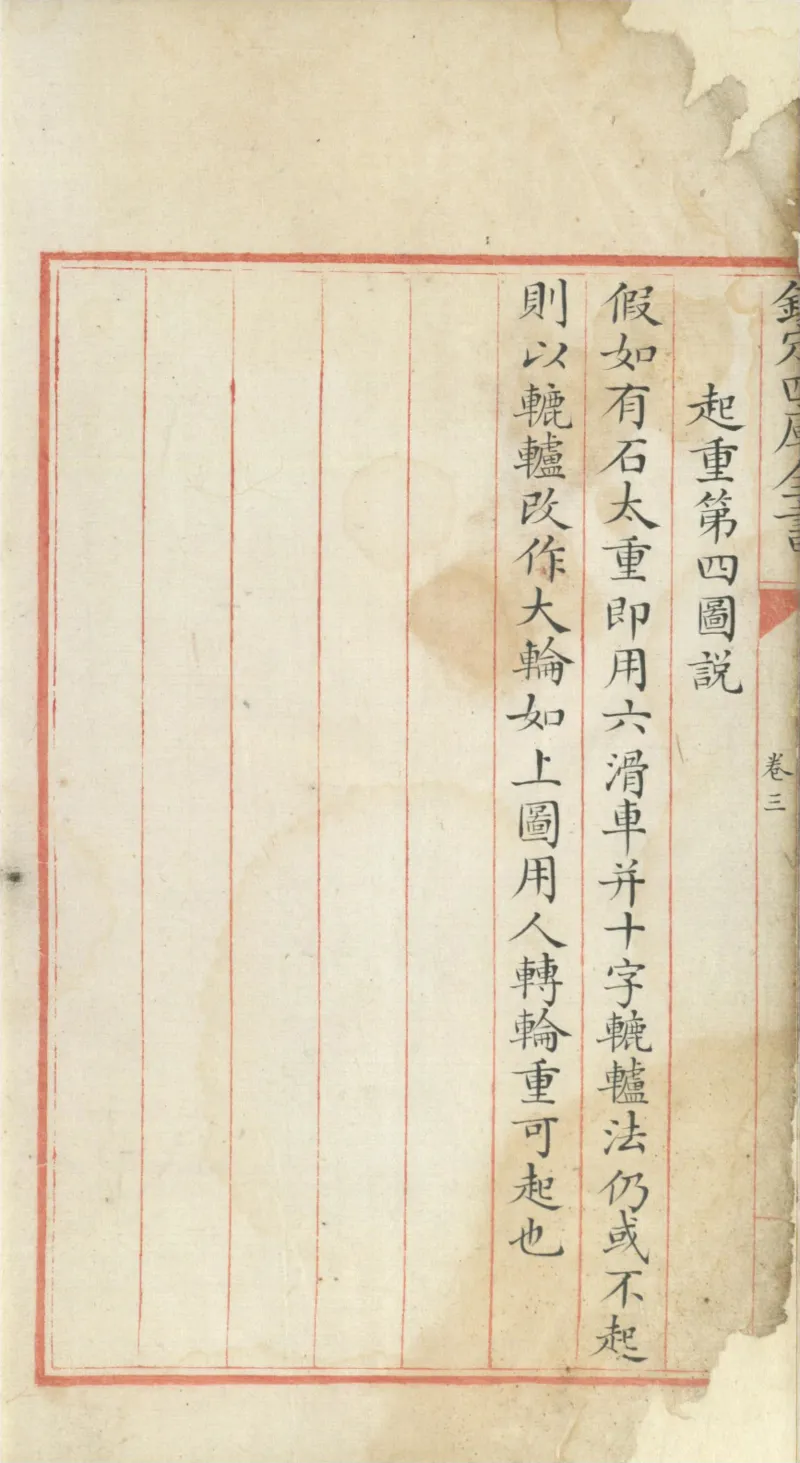 欽定四庫全書
卷三
起重第四圖説
假如有石太重即用六滑車并十字轆轤法仍或不起
則以轆轤改作大輪如上圖用人轉輪重可起也